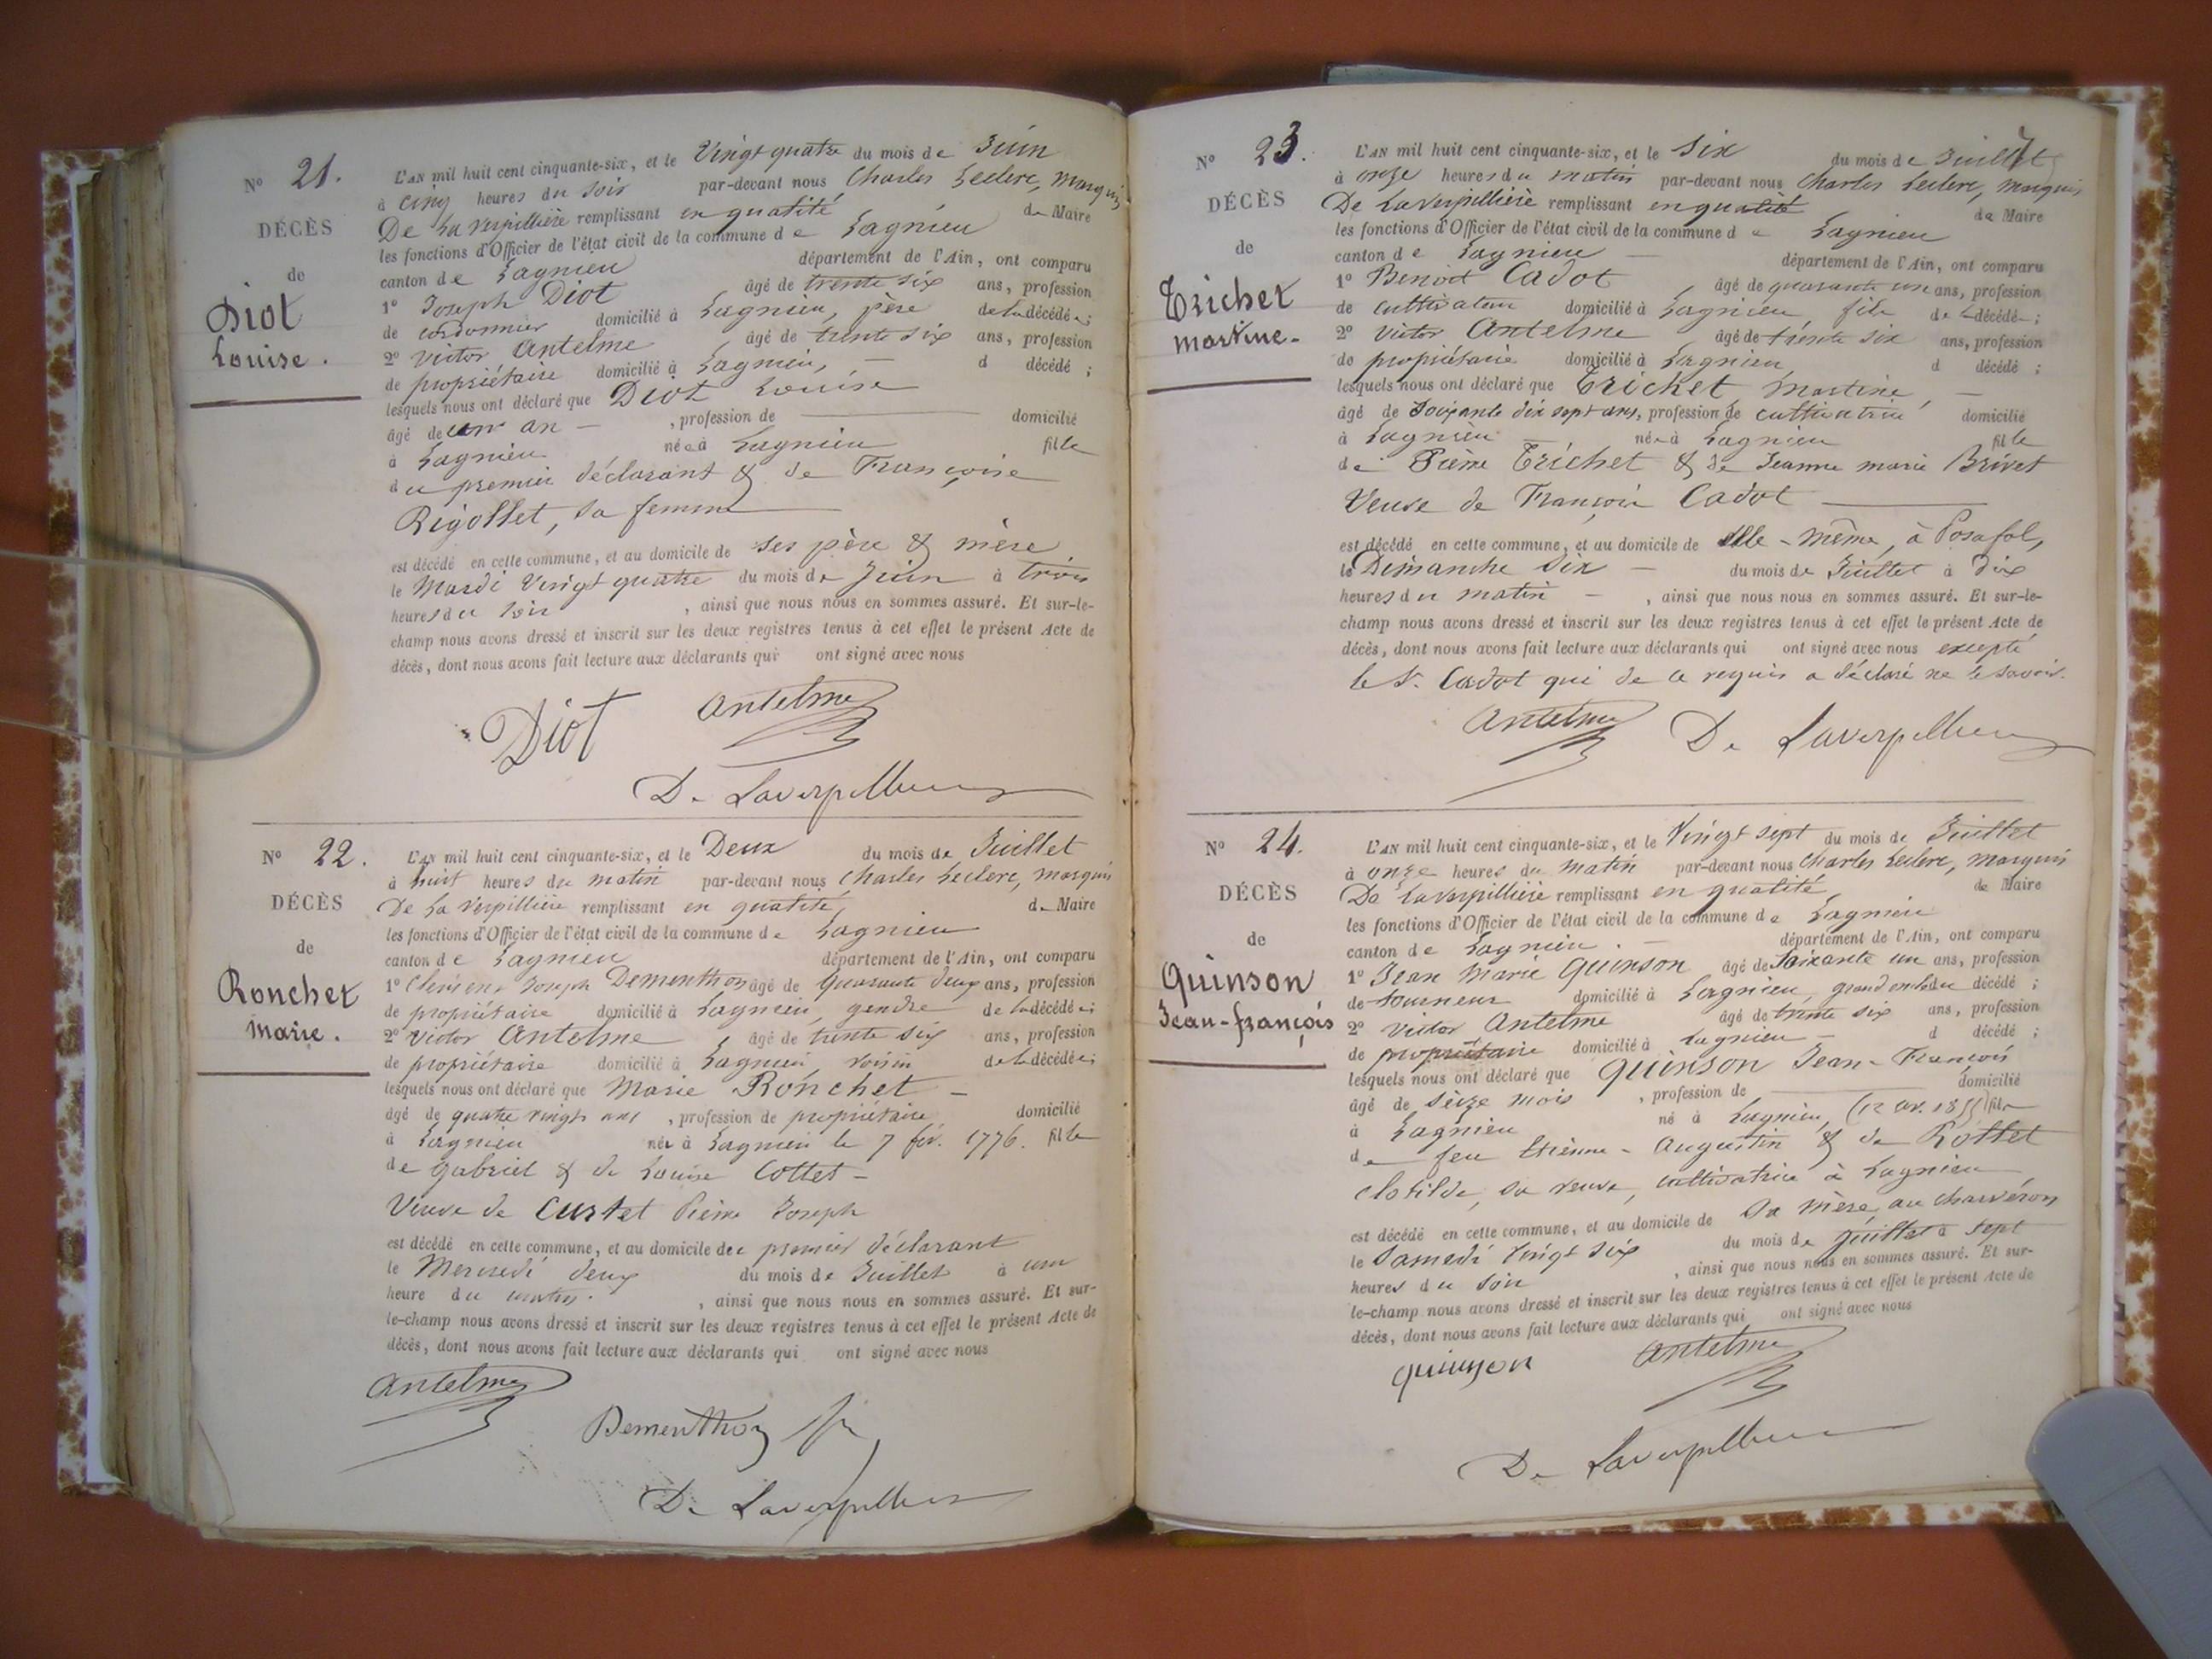 N° 21.
DÉCÈS
de
Diot
Louise.
L'AN mil huit cent cinquante-six, et le Vingt quatre du mois de Juin
à cinq heures du soir par-devant nous Charles Leclerc, marquis
De La Verpillière remplissant en qualité de Maire
les fonctions d'Officier de l'état civil de la commune de Lagnieu
canton de Lagnieu département de l'Ain, ont comparu
1° Joseph Diot âgé de trente six ans, profession
de cordonnier domicilié à Lagnieu, père de la décédée;
2° Victor Antelme âgé de trente six ans, profession
de propriétaire domicilié à Lagnieu, — d décédé ;
lesquels nous ont déclaré que Diot Louise
âgé de un an — , profession de — domicilié
à Lagnieu née à Lagnieu fille
du premier déclarant & de Françoise
Rigollet, sa femme
est décédé en cette commune, et au domicile de ses père & mère
le Mardi Vingt quatre du mois de Juin à trois
heures du soir , ainsi que nous nous en sommes assuré. Et sur-le-
champ nous avons dressé et inscrit sur les deux registres tenus à cet effet le présent Acte de
décès, dont nous avons fait lecture aux déclarants qui ont signé avec nous
Diot Antelme
De Laverpilliere
N° 22.
DÉCÈS
de
Ronchet
Marie.
L'AN mil huit cent cinquante-six, et le Deux du mois de Juillet
à huit heures du matin par-devant nous Charles Leclerc, marquis
De La Verpillière remplissant en qualité, de Maire
les fonctions d'Officier de l'état civil de la commune de Lagnieu
canton de Lagnieu département de l'Ain, ont comparu
1° Clément Joseph Dementhon âgé de quarante deux ans, profession
de propriétaire domicilié à Lagnieu, gendre de la décédée;
2° Victor Antelme âgé de trente six ans, profession
de propriétaire domicilié à Lagnieu voisin de la décédée;
lesquels nous ont déclaré que Marie Ronchet —
âgé de quatre vingts ans , profession de propriétaire domicilié
à Lagnieu née à Lagnieu le 7 fév. 1776. fille
de Gabriel & de Louise Cottet —
Veuve de Curtet Pierre Joseph
est décédé en cette commune, et au domicile du premier déclarant
le Mercredi deux du mois de Juillet à une
heure du matin. , ainsi que nous nous en sommes assuré. Et sur-
le-champ nous avons dressé et inscrit sur les deux registres tenus à cet effet le présent Acte de
décès, dont nous avons fait lecture aux déclarants qui ont signé avec nous
Antelme
Dementhon
De Laverpilliere
N° 23.
DÉCÈS
de
Trichet
Martine.
L'AN mil huit cent cinquante-six, et le six du mois de Juillet
à onze heures du matin par-devant nous Charles Leclerc, marquis
De Laverpillière remplissant en qualité de Maire
les fonctions d'Officier de l'état civil de la commune de Lagnieu
canton de Lagnieu — département de l'Ain, ont comparu
1° Benoit Cadot âgé de quarante un ans, profession
de cultivateur domicilié à Lagnieu, fils de la décédée;
2° Victor Antelme âgé de trente six ans, profession
de propriétaire domicilié à Lagnieu d décédé ;
lesquels nous ont déclaré que Trichet Martine, —
âgé de Soixante dix sept ans, profession de cultivatrice domicilié
à Lagnieu — née à Lagnieu fille
de Pierre Trichet & de Jeanne marie Brivet
Veuve de François Cadot
est décédé en cette commune, et au domicile de elle-même, à Posafol,
le Dimanche six — du mois de Juillet à dix
heures du matin — , ainsi que nous nous en sommes assuré. Et sur-le-
champ nous avons dressé et inscrit sur les deux registres tenus à cet effet le présent Acte de
décès, dont nous avons fait lecture aux déclarants qui ont signé avec nous excepté
le Sr. Cadot qui de ce requis a déclaré ne le savoir.
Antelme De Laverpilliere
N° 24.
DÉCÈS
de
Quinson
Jean-françois
L'AN mil huit cent cinquante-six, et le Vingt sept du mois de Juillet
à onze heures du matin par-devant nous Charles Leclerc, marquis
De Laverpillière remplissant en qualité, de Maire
les fonctions d'Officier de l'état civil de la commune de Lagnieu
canton de Lagnieu. — département de l'Ain, ont comparu
1° Jean Marie Quinson âgé de soixante un ans, profession
de tourneur domicilié à Lagnieu, grand oncle du décédé ;
2° Victor Antelme âgé de trente six ans, profession
de propriétaire domicilié à Lagnieu — d décédé ;
lesquels nous ont déclaré que Quinson Jean-François
âgé de seize mois , profession de — domicilié
à Lagnieu né à Lagnieu, (12 av. 1855) fils
de feu Etienne-Augustin & de Rollet
Clotilde, sa veuve, cultivatrice à Lagnieu
est décédé en cette commune, et au domicile de Sa mère, au Charvéron
le Samedi Vingt six du mois de Juillet à sept
heures du soir , ainsi que nous nous en sommes assuré. Et sur-
le-champ nous avons dressé et inscrit sur les deux registres tenus à cet effet le présent Acte de
décès, dont nous avons fait lecture aux déclarants qui ont signé avec nous
quinson Antelme
De Laverpilliere